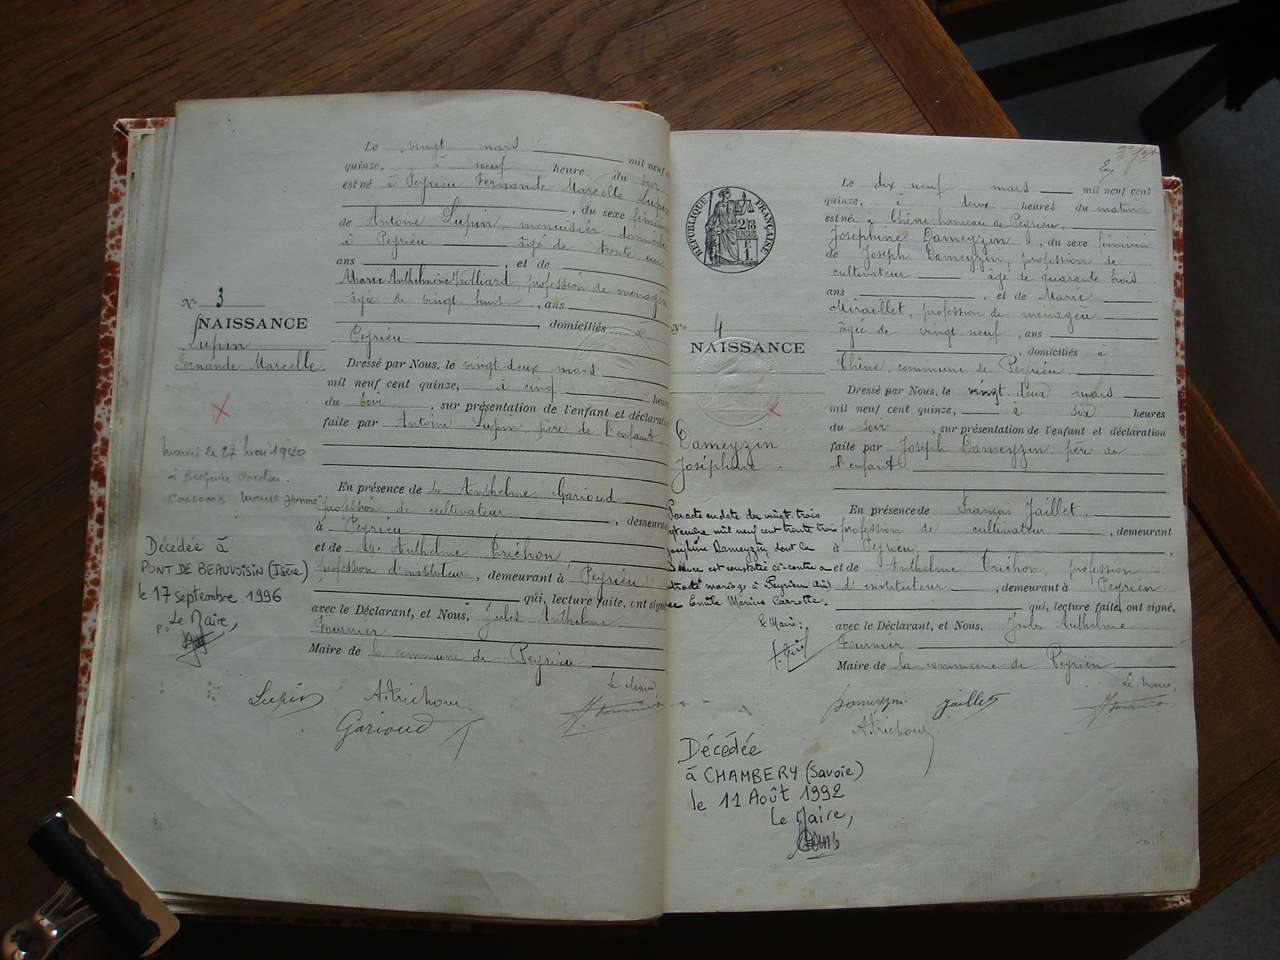 Le vingt mars mil neuf
quinze, à neuf heure du soir
est né à Peyrieu Fernande Marcelle Lupin
, du sexe féminin
de Antoine Lupin, menuisier, domicilié
à Peyrieu âgé de trente un
ans , et de
Marie Anthelmine, profession de ménagère
âgée de vingt huit , ans
, domiciliés à
Peyrieu
N° 3
NAISSANCE
Lupin
Fernande Marcelle
Dressé par Nous, le vingt deux mars
mil neuf cent quinze, à cinq heures
du soir , sur présentation de l'enfant et déclaration
faite par Antoine Lupin père de l'enfant
marié le 27 mai 1940
à
Marcel Honoré
En présence de Anthelme Garioud
profession de cultivateur , demeurant
à Peyrieu
et de Anthelme Trichon,
profession d'instituteur, demeurant à Peyrieu
qui, lecture faite, ont signé
avec le Déclarant, et Nous, Jules Anthelme
Fournier
Maire de la commune de Peyrieu
Décédée à
PONT DE BEAUVOISIN (Isère)
le 17 septembre 1996
Le Maire,
Le Maire
Lupin A. Trichon
Garioud Fournier
RÉPUBLIQUE FRANÇAISE
Le dix neuf mars mil neuf cent
quinze, à deux heures du matin
est née à Chêne hameau de Peyrieu,
Joséphine Dameyzin , du sexe féminin
de Joseph Dameyzin, profession de
cultivateur âgé de quarante trois
ans , et de Marie
Miraillet, profession de ménagère
âgée de vingt neuf , ans
, domiciliés à
Chêne, commune de Peyrieu
N° 4
NAISSANCE
Dameyzin
Joséphine
Dressé par Nous, le vingt deux mars
mil neuf cent quinze, à six heures
du soir , sur présentation de l'enfant et déclaration
faite par Joseph Dameyzin, père de
l'enfant
En présence de François Jaillet,
profession de cultivateur , demeurant
à Peyrieu ,
et de Anthelme Trichon, profession
d'instituteur , demeurant à Peyrieu
qui, lecture faite, ont signé,
avec le Déclarant, et Nous, Jules Anthelme
Fournier
Maire de la commune de Peyrieu
Par acte en date du vingt trois
septembre mil neuf cent trente trois
Joséphine Dameyzin dont la
naissance est constatée ci-contre a
contracté mariage à Peyrieu (Ain)
avec Emile Marius Carrotte.
Le Maire:
Le Maire
Dameyzin Jaillet
A. Trichon Fournier
Décédée
à CHAMBERY (Savoie)
le 11 Août 1992
Le Maire,